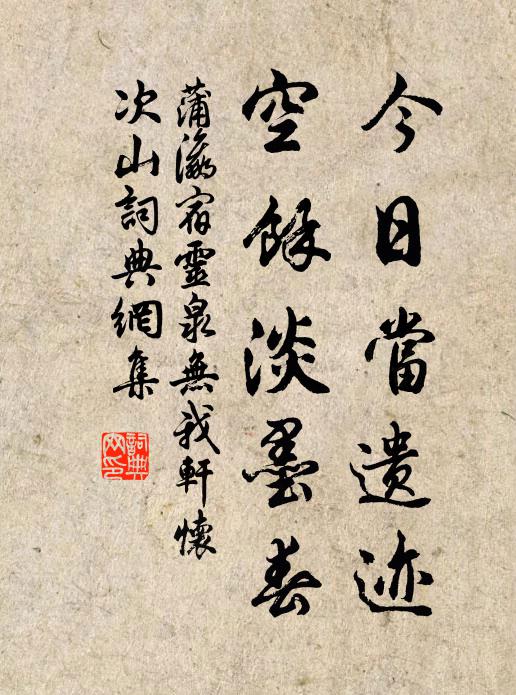 今日當遺迹
空餘淡墨春
蒲瀛宿靈泉無我軒懷
次山詞典網集
詞典網印